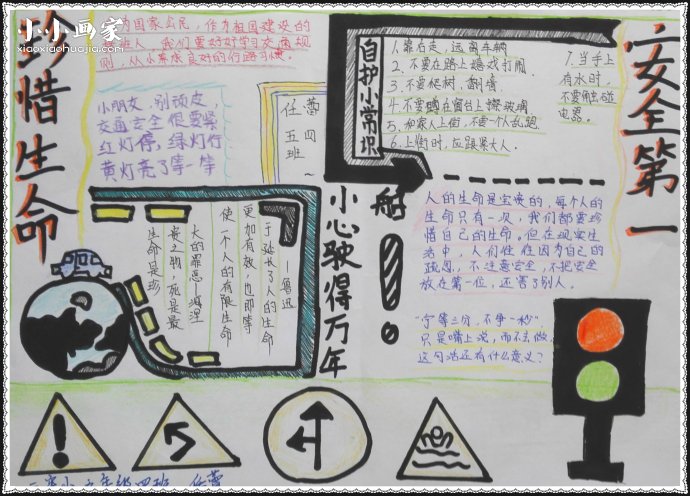 小小画家
xiaoxiaohuajia.com
珍惜生命
为国家公民，作为祖国建设的
人，我们要好好学习交通规
则，从小养成良好的行路习惯。
小朋友，别顽皮，
交通安全很要紧
红灯停，绿灯行
黄灯亮了等一等
任蕾
五四
班～
自护小常识
1.靠右走，远离车辆
2.不要在路上嬉戏打闹
3.不要爬树，翻墙
4.不要蹲在窗台上擦玻璃
5.和家人上街，不要一个人乱跑
6.上街时，应跟紧大人。
7.当手上
有水时，
不要触碰
电器。
安全第一
生命是珍
使一个人的有限生命
更加有效，也即等
于延长了人的生命
——鲁迅
小心驶得万年
船！
人的生命是宝贵的，每个人的
生命只有一次，我们都要珍
惜自己的生命。但在现实生
活中，人们往往因为自己的
疏忽，不注意安全，不把安全
放在第一位，还害了别人。
“宁等三分，不争一秒”
只是嘴上说，而不去做，
这句话还有什么意义？
！